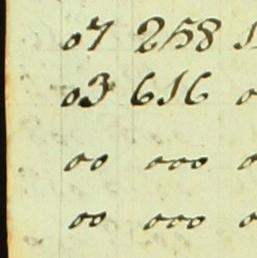 07 258 1
03 616 0
00 000 0
00 000 0